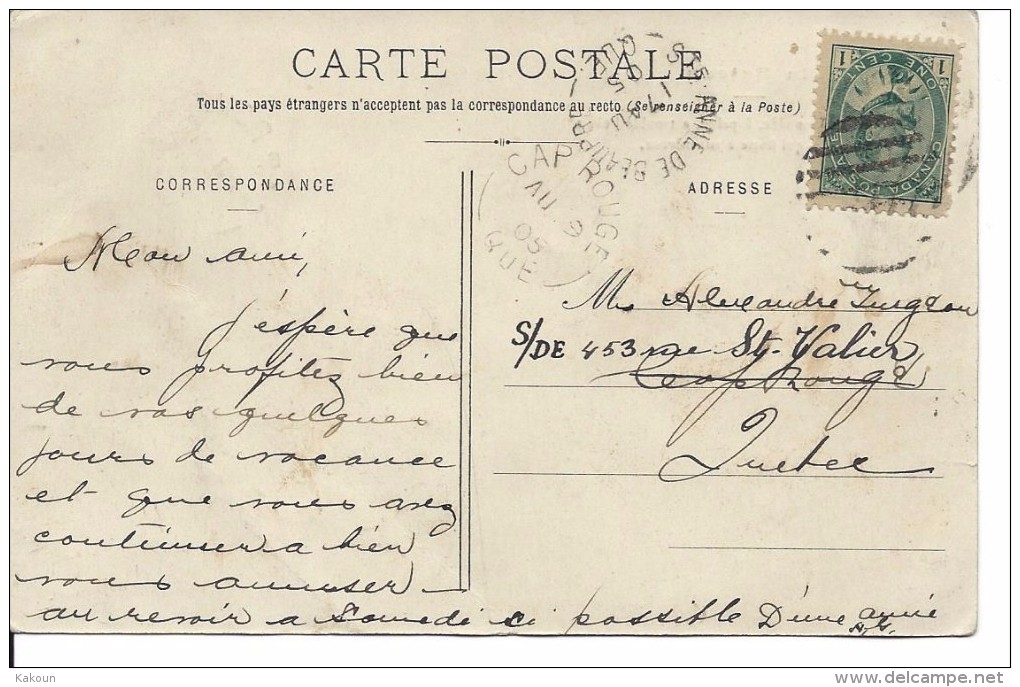 CARTE POSTALE
Tous les pays étrangers n'acceptent pas la correspondance au recto (Se renseigner à la Poste)
CORRESPONDANCE
Mon ami,
j'éspère que
vous profitez bien
de vos quelques
jours de vacance
et que vous avez
continuer a bien
vous amuser
au revoir a Samedi si possible D'une amie
ADRESSE
Mr Alexandre Turgeon
S/DE 453 rue St. Valier
Cap Rouge
Quebec
STE ANNE DE BEAUPRE
QUE
17 AU
05
CAP ROUGE
AU 9
05
QUE
1 1
ONE CENT
CANADA POSTAGE
Kakoun
delcampe.net